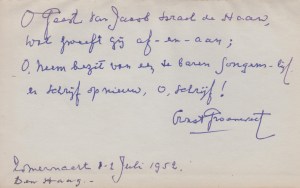 O Geest van Jacob Israel de Haan,
wat zweeft gij af-en-aan;
O, neem bezit van een
en schrijf opnieuw, O, schrijf!
Zomernacht 1-2 Juli 1952.
Den Haag.